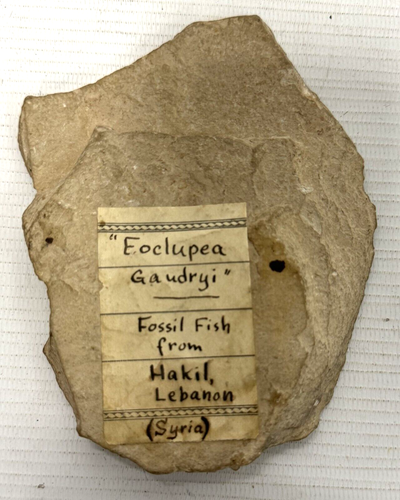 "Eoclupea
Gaudryi"
Fossil Fish
from
Hakil,
Lebanon
(Syria)